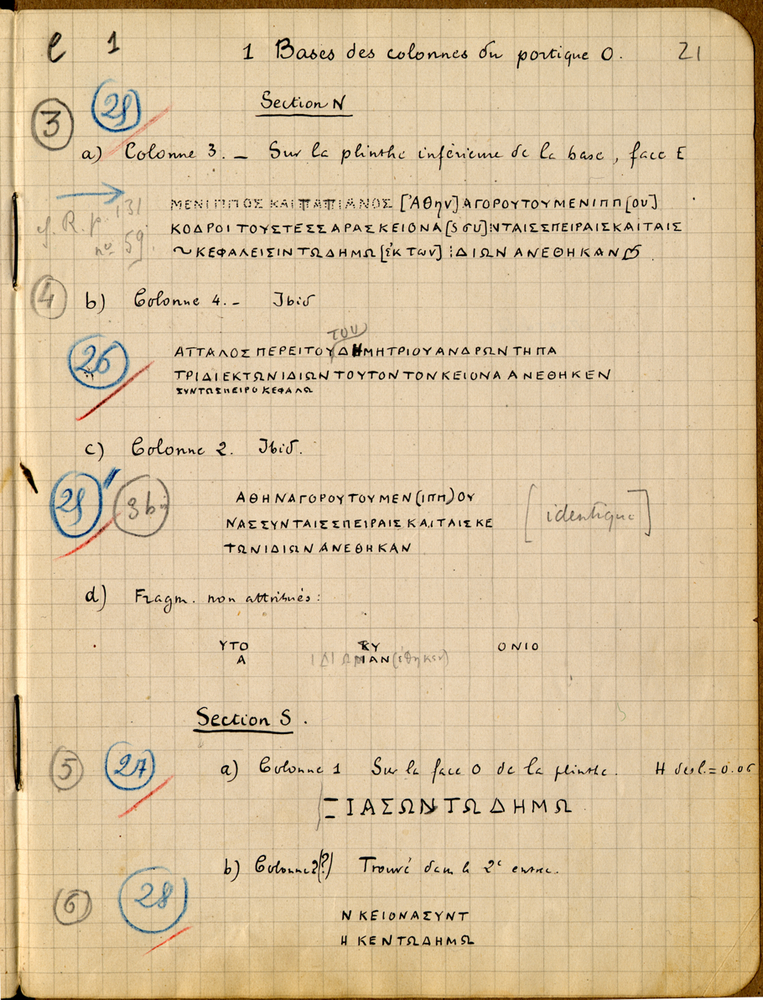 e 1 1 Bases des colonnes du portique O. 21
Section N
3 25
a) Colonne 3. — Sur la plinthe inférieure de la base, face E
ΜΕΝΙΠΠΟΣ ΚΑΙ ΠΑΠΙΑΝΟΣ [Ἀθην] ΑΓΟΡΟΥΤΟΥΜΕΝΙΠΠ[ου]
cf. R. p. 131
ΚΟΔΡΟΙ ΤΟΥΣΤΕΣΣΑΡΑΣΚΕΙΟΝΑ[ς συ]ΝΤΑΙΣΣΠΕΙΡΑΙΣΚΑΙΤΑΙΣ
nº 59.
~ ΚΕΦΑΛΕΙΣΙΝΤΩΔΗΜΩ [ἐκ των] ΙΔΙΩΝ ΑΝΕΘΗΚΑΝ
4 b) Colonne 4. — Ibid
του
26 ΑΤΤΑΛΟΣ ΠΕΡΕΙΤΟΥΔΗΜΗΤΡΙΟΥΑΝΔΡΩΝΤΗΠΑ
ΤΡΙΔΙΕΚΤΩΝΙΔΙΩΝΤΟΥΤΟΝΤΟΝΚΕΙΟΝΑΑΝΕΘΗΚΕΝ
ΣΥΝΤΩΣΠΕΙΡΟΚΕΦΑΛΩ
c) Colonne 2. Ibid.
25 3b ΑΘΗΝΑΓΟΡΟΥΤΟΥΜΕΝ(ιππ)ΟΥ
ΝΑΣΣΥΝΤΑΙΣΣΠΕΙΡΑΙΣΚΑΙΤΑΙΣΚΕ [identique]
ΤΩΝΙΔΙΩΝΑΝΕΘΗΚΑΝ
d) Fragm. non attribués :
ΥΤΟ ΚΥ ΟΝΙΟ
Α ΙΔΙΩΝΑΝ(έθηκεν)
Section S.
5 27 a) Colonne 1 Sur la face O de la plinthe. H des l. = 0.06
ΞΙΑΣΩΝΤΩΔΗΜΩ
b) Colonne 2(?) Trouvé dans le 2e entre.
6 28
Ν ΚΕΙΟΝΑΣΥΝΤ
Η ΚΕΝΤΩΔΗΜΩ